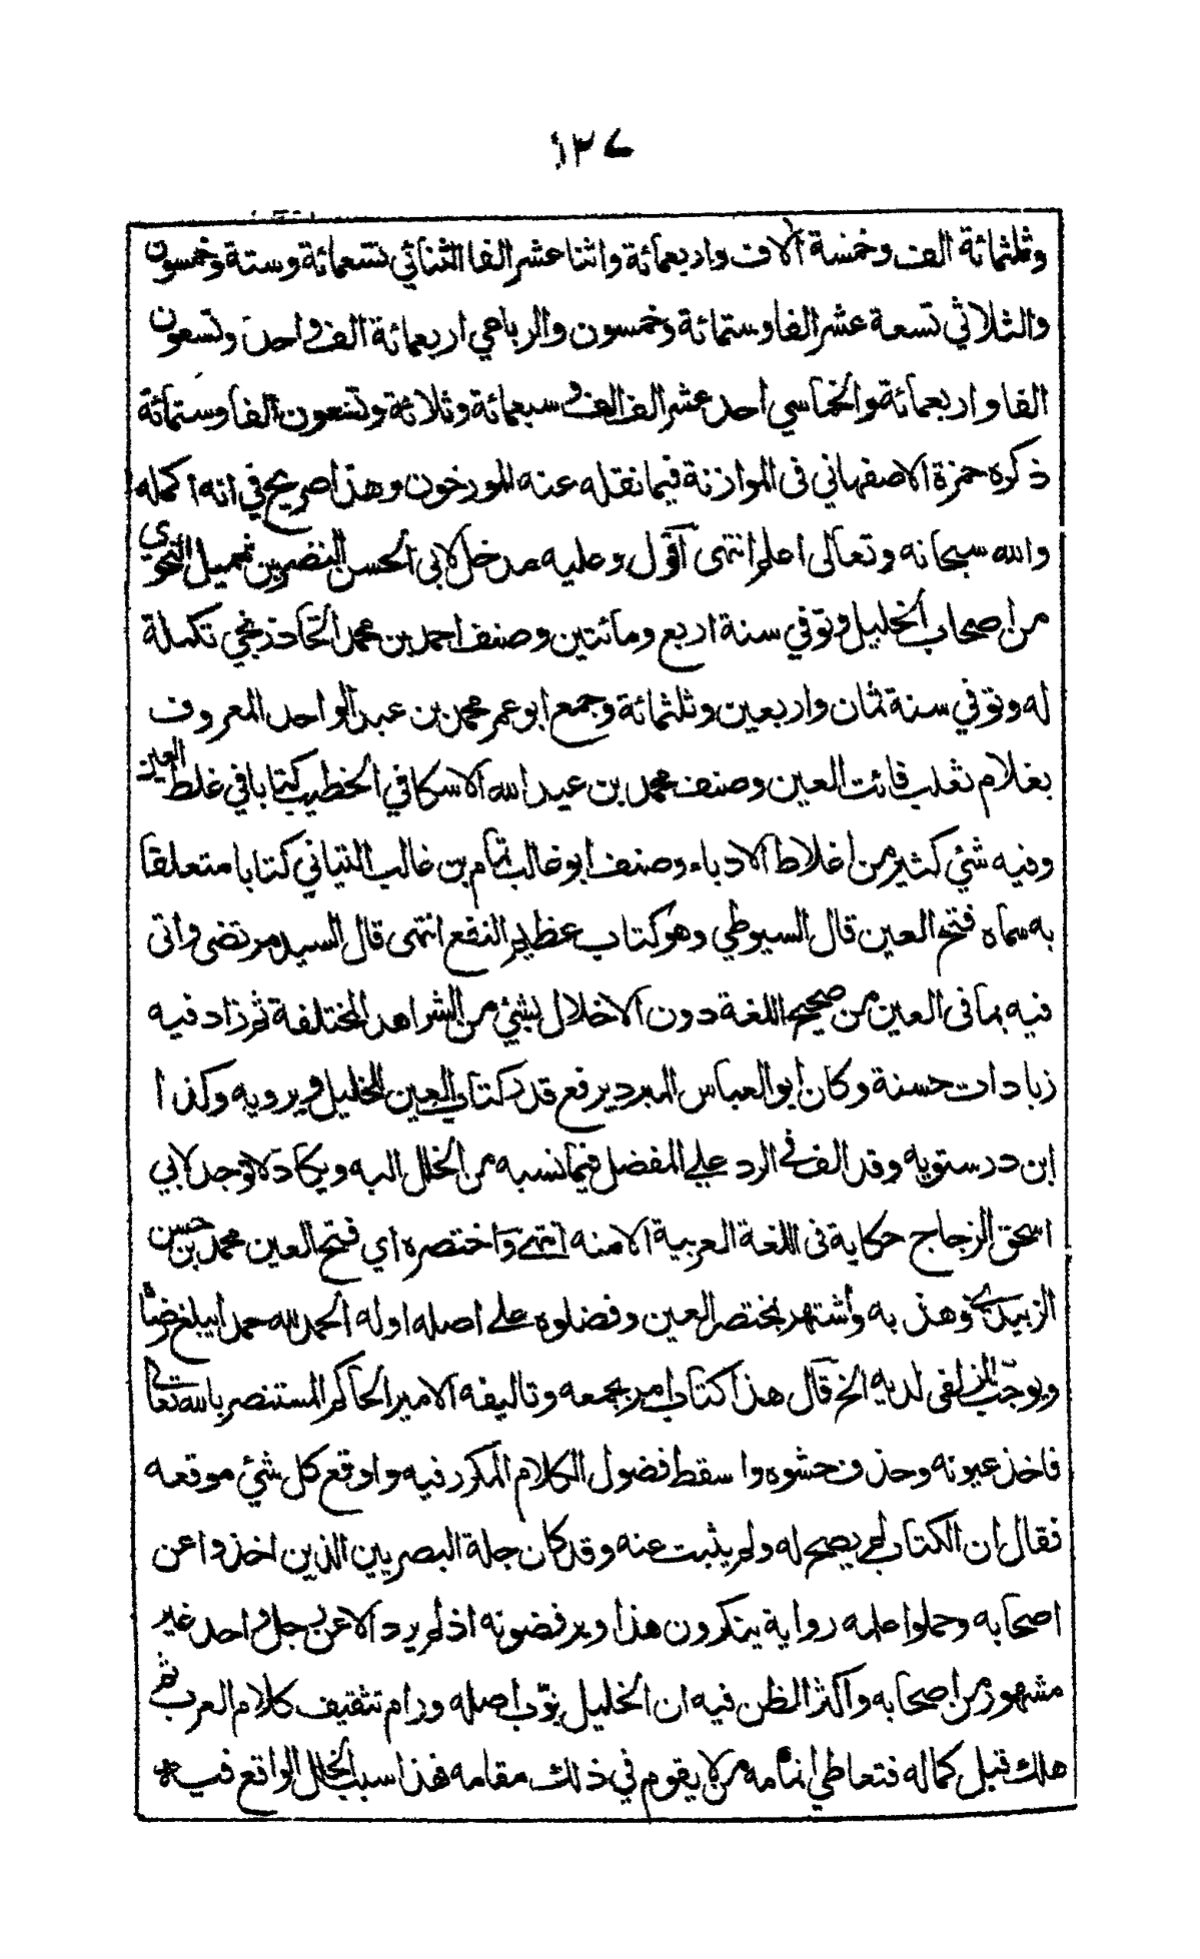 ١٣٧
وثلثمائة الف وخمسة آلاف واربعمائة واثنا عشر الفا الثنائي تسعمائة وستة وخمسون
والثلاثي تسعة عشر الفا وستمائة وخمسون والرباعي اربعمائة الف واحد وتسعون
الفا واربعمائة والخماسي احد عشر الف الف وسبعمائة وثلاثة وتسعون الفا وستمائة
ذكره حمزة الاصفهاني فى الموازنة فيما نقله عنه المورخون وهذا صريح في انه اكمله
والله سبحانه وتعالى اعلم انتهى اقول وعليه مدخل لابي الحسن النضر بن شميل النحوي
من اصحاب الخليل وتوفي سنة اربع ومائتين وصنف احمد بن محمد الخارزنجي تكملة
له وتوفي سنة ثمان واربعين وثلثمائة وجمع ابو عمر محمد بن عبد الواحد المعروف
بغلام ثعلب فائت العين وصنف محمد بن عبد الله الاسكافي الخطيب كتابا في غلط العين
وفيه شئي كثير من اغلاط الادباء وصنف ابو غالب تمام بن غالب التياني كتابا متعلقا
به سماه فتح العين قال السيوطي وهو كتاب عظيم النفع انتهى قال السيد مرتضى واتى
فيه بما فى العين من صحيح اللغة دون الاخلال بشئي من الشراهد المختلفة ثم زاد فيه
زيادات حسنة وكان ابو العباس المبرد يرفع قدر كتاب العين للخليل ويرويه وكذا
ابن درستويه وقد الف في الرد علي المفضل فيما نسبه من الخلل اليه ويكاد لا توجد لابي
اسحق الزجاج حكاية فى اللغة العربية الا منه انتهى واختصره اي فتح العين محمد بن حسن
الزبيدي وهذبه واشتهر بمختصر العين وفضلوه علي اصله اوله الحمد لله حمدا يبلغ رضاه
ويوجب الزلفى لديه الخ قال هذا كتاب امر بجمعه وتاليفه الامير الحاكم المستنصر بالله تعالى
فاخذ عيونه وحذف حشوه واسقط فضول الكلام المكرر فيه واوقع كل شئي موقعه
فقال ان الكتاب لم يصح له ولم يثبت عنه وقد كان جلة البصريين الذين اخذوا عن
اصحابه وحملوا علمه رواية ينكرون هذا ويرفضونه اذ لم يرد الا عن رجل واحد غير
مشهور من اصحابه واكثر الظن فيه ان الخليل بوّب اصله ورام تثقيف كلام العرب ثم
هلك قبل كماله فتعاطي اتمامه من لا يقوم في ذلك مقامه فهذا سبب الخلل الواقع فيه